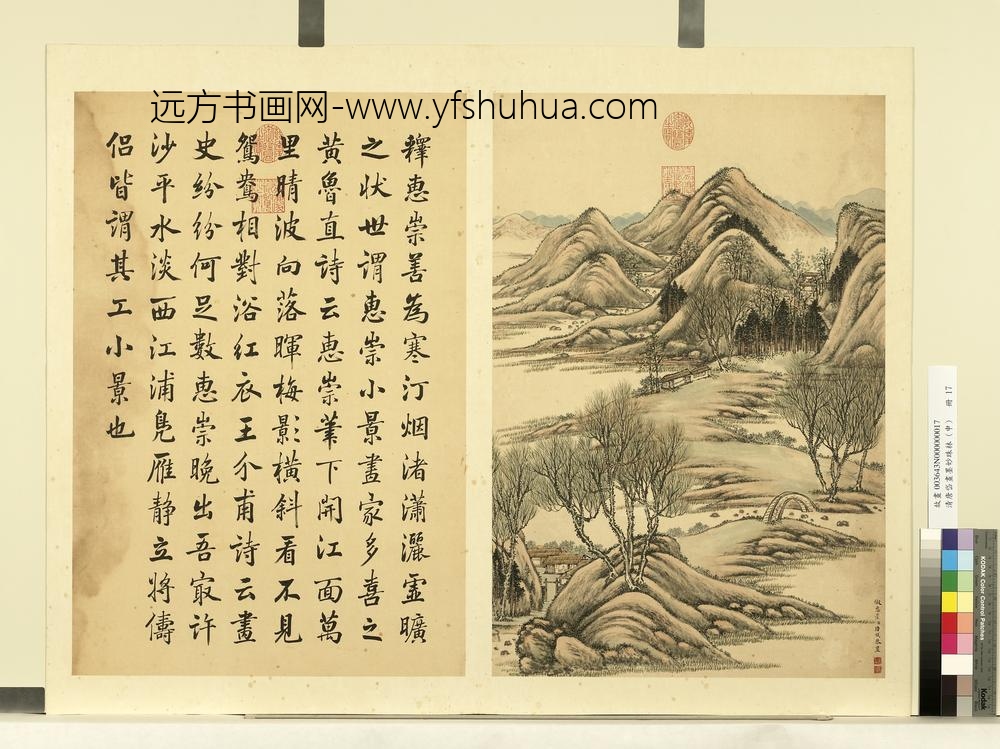 远方书画网-www.yfshuhua.com
釋惠崇善為寒汀烟渚瀟灑虛曠
之狀世謂惠崇小景畫家多喜之
黄魯直詩云惠崇筆下開江面萬
里晴波向落暉梅影横斜看不見
鴛鴦相對浴紅衣王介甫詩云畫
史紛紛何足數惠崇晚出吾㝡許
沙平水淡西江浦鳧雁静立將儔
侣皆謂其工小景也
故畫 003643N000000017
清唐岱畫墨妙珠林（申） 冊 17
KODAK Color Control Patches
Kodak